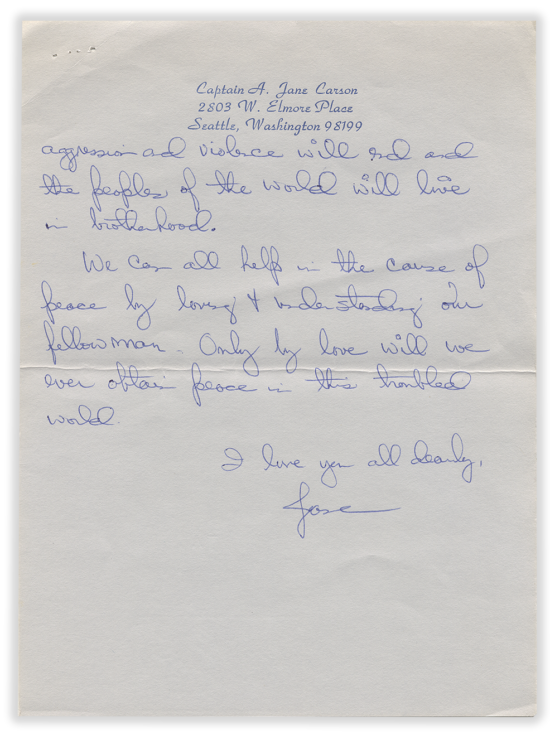 Captain A. Jane Carson
2803 W. Elmore Place
Seattle, Washington 98199
aggression and violence will end and
the peoples of the world will live
in brotherhood.
We can all help in the cause of
peace by loving & understanding our
fellow man. Only by love will we
ever obtain peace in this troubled
world.
I love you all dearly,
Jane